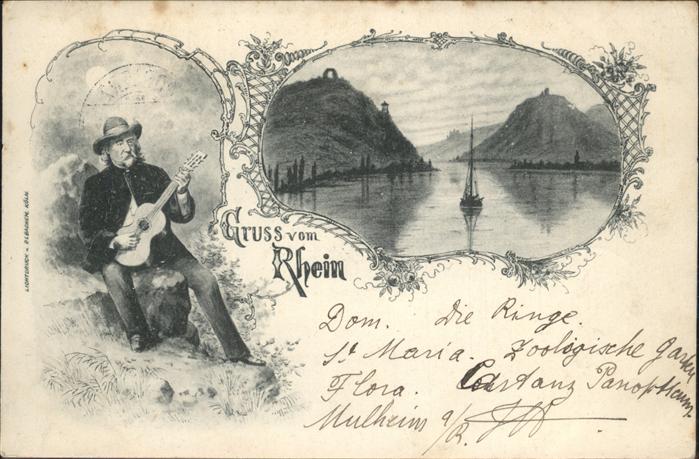 Gruss vom
Rhein
LICHTDRUCK v.
KÖLN.
Dom. Die Ringe.
St Maria. Zoologische Garten
Flora. Castanz Panoptikum.
Mülheim a/R.